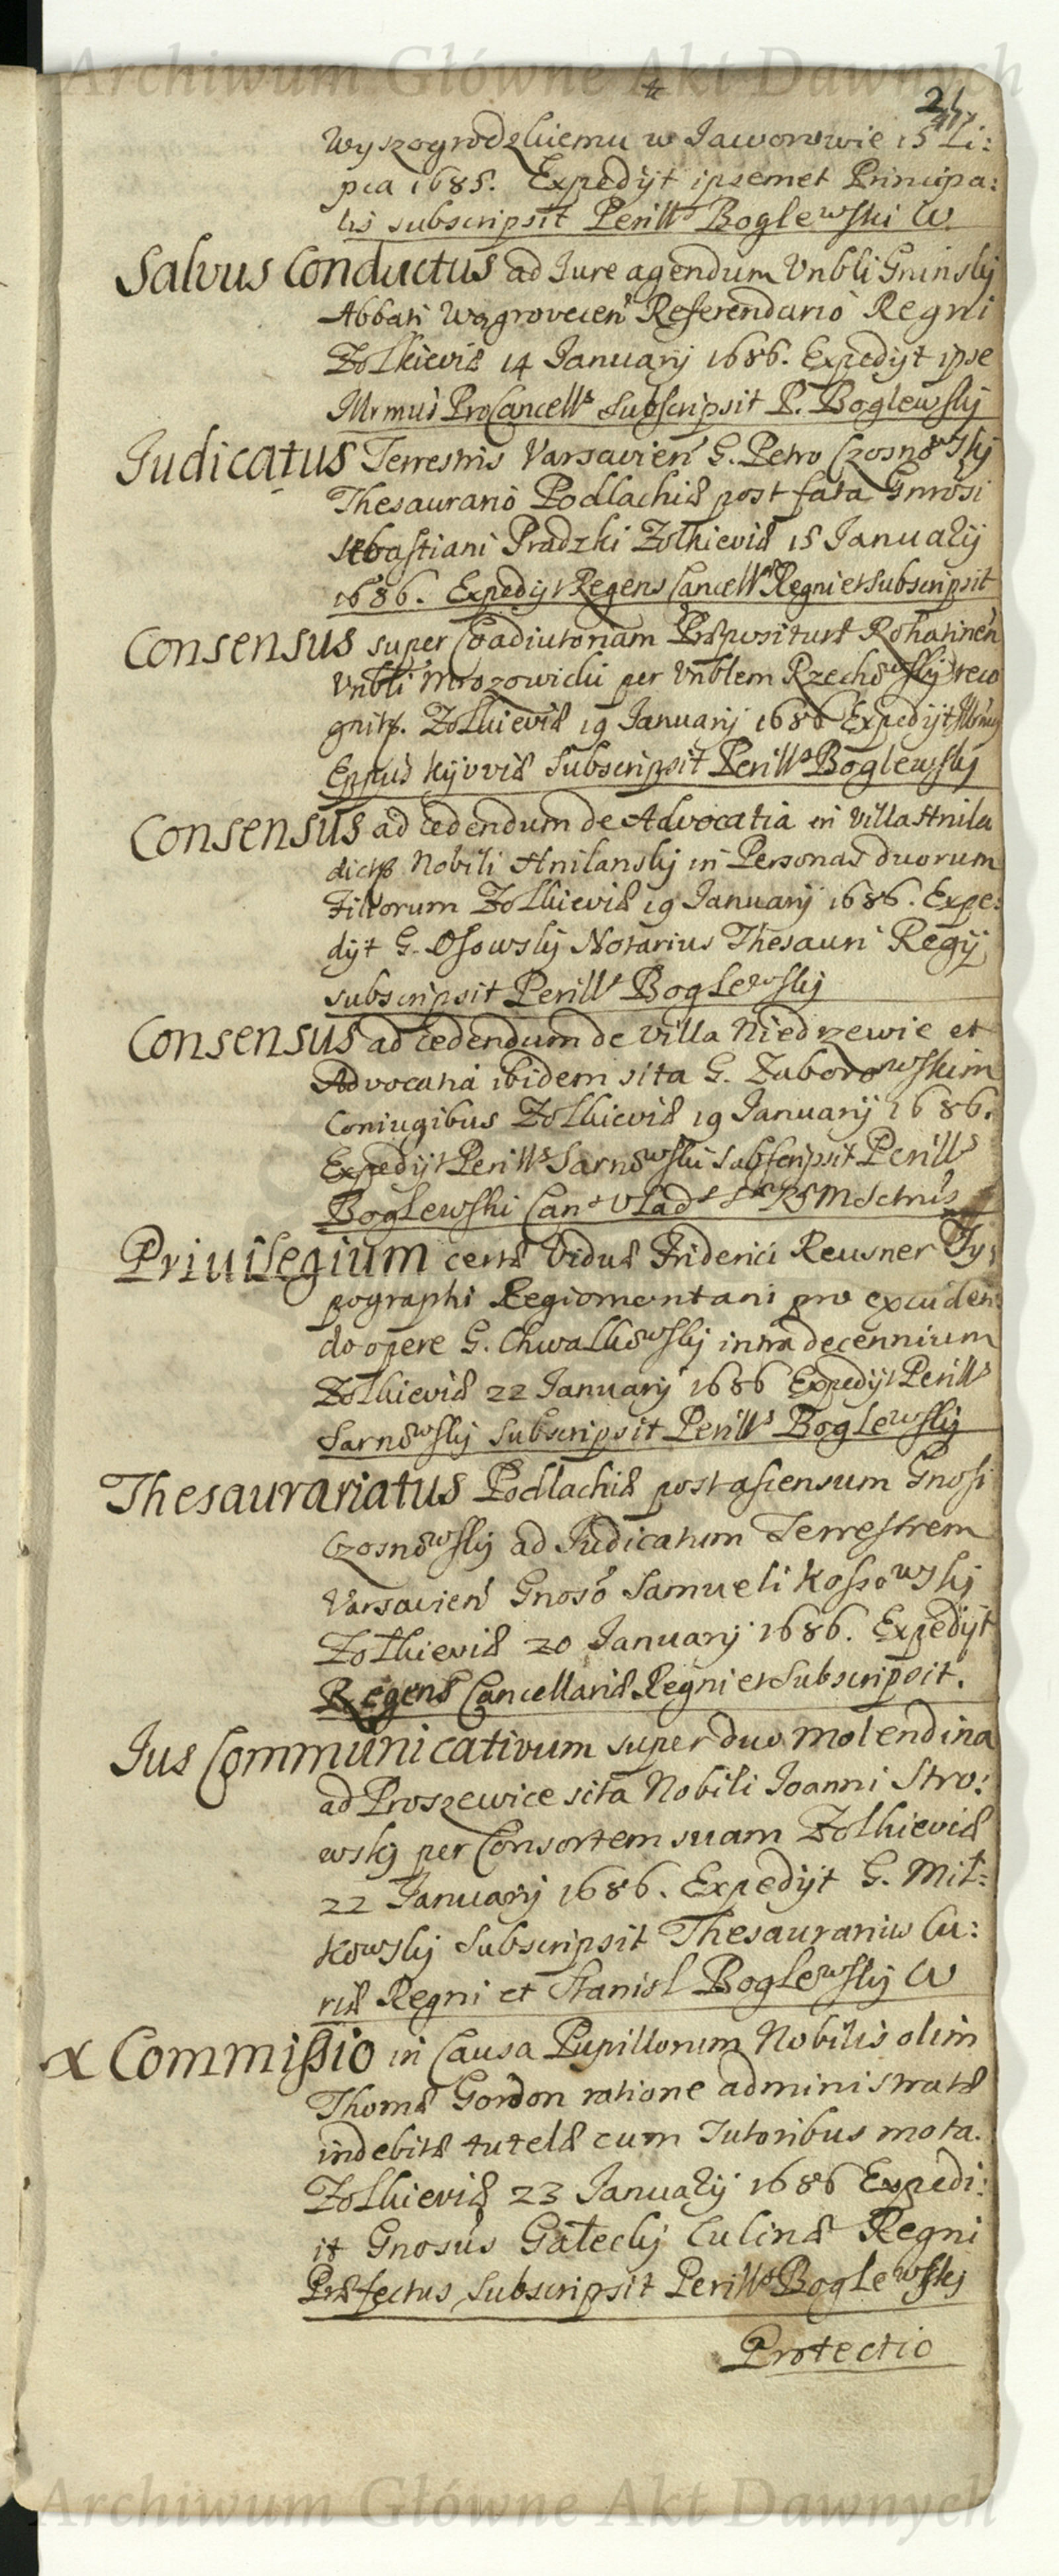 Archiwum Główne Akt Dawnych
21
Wyszogrodzkiemu w Jaworowie 15 Li:
pca 1685. Expedijt ipsemet Principa:
lis subscripsit Perills Boglewski W
Salvus Conductus ad Jure agendum Vnbli Gninskij
Abbati Wągrovecen Referendario Regni
Zolkieviæ 14 Januarij 1686. Expedijt ipse
Illrmus ProCancells Subscripsit P. Boglewskij
Judicatus Terrestris Varsavien G. Petro Czosnowskij
Thesaurario Podlachiæ post fata Gnrosi
Sebastiani Pradzki Zolkieviæ 15 Januarij
1686. Expedijt Regens Cancellæ Regni et Subscripsit
Consensus super Coadiutoriam Præposituræ Rohatinen
Vnbli Mrozowicki per Vnblem Rzechowskij reco
gnitæ. Zolkieviæ 19 Januarij 1686 Expedijt Illmus
Eppus Kijoviæ Subscripsit Perills Boglewskij
Consensus ad cedendum de Advocatia in Villa Hnila
dictæ Nobili Hnilanskij in Personas duorum
Filiorum Zolkieviæ 19 Januarij 1686. Expe:
dijt G. Osowskij Notarius Thesauri Regij
subscripsit Perills Boglewskij
Consensus ad cedendum de Villa Niedrzewie et
Advocatia ibidem sita G. Zaborowskim
Coniugibus Zolkieviæ 19 Januarij 1686.
Expedijt Perills Sarnowski Subscripsit Perills
Boglewski Can Vlad RM Sctrius
Priuilegium certæ Viduæ Friderici Reusner Ty:
pographi Regiomontani pro excuden:
do opere G. Chwalkowskij intra decennium
Zolkieviæ 22 Januarij 1686 Expedijt Perills
Sarnowskij Subscripsit Perills Boglewskij
Thesaurariatus Podlachiæ post ascensum Gnosi
Czosnowskij ad Judicatum Terrestrem
Varsavien Gnoso Samueli Kossowskij
Zolkieviæ 20 Januarij 1686. Expedijt
Regens Cancellariæ Regni et Subscripsit.
Jus Communicativum super duo Molendina
ad Proszewice sita Nobili Joanni Stro:
wskij per Consortem suam Zolkieviæ
22 Januarij 1686. Expedijt G. Mit:
kowskij Subscripsit Thesaurarius Cu:
riæ Regni et Stanisl Boglewskij W
X Commissio in Causa Pupillorum Nobilis olim
Thomæ Gordon ratione administratæ
indebitæ tutelæ cum Tutoribus mota.
Zolkieviæ 23 Januarij 1686 Expedi:
it Gnosus Gałeckij Culinæ Regni
Præfectus Subscripsit Perills Boglewskij
Protectio
Archiwum Główne Akt Dawnych